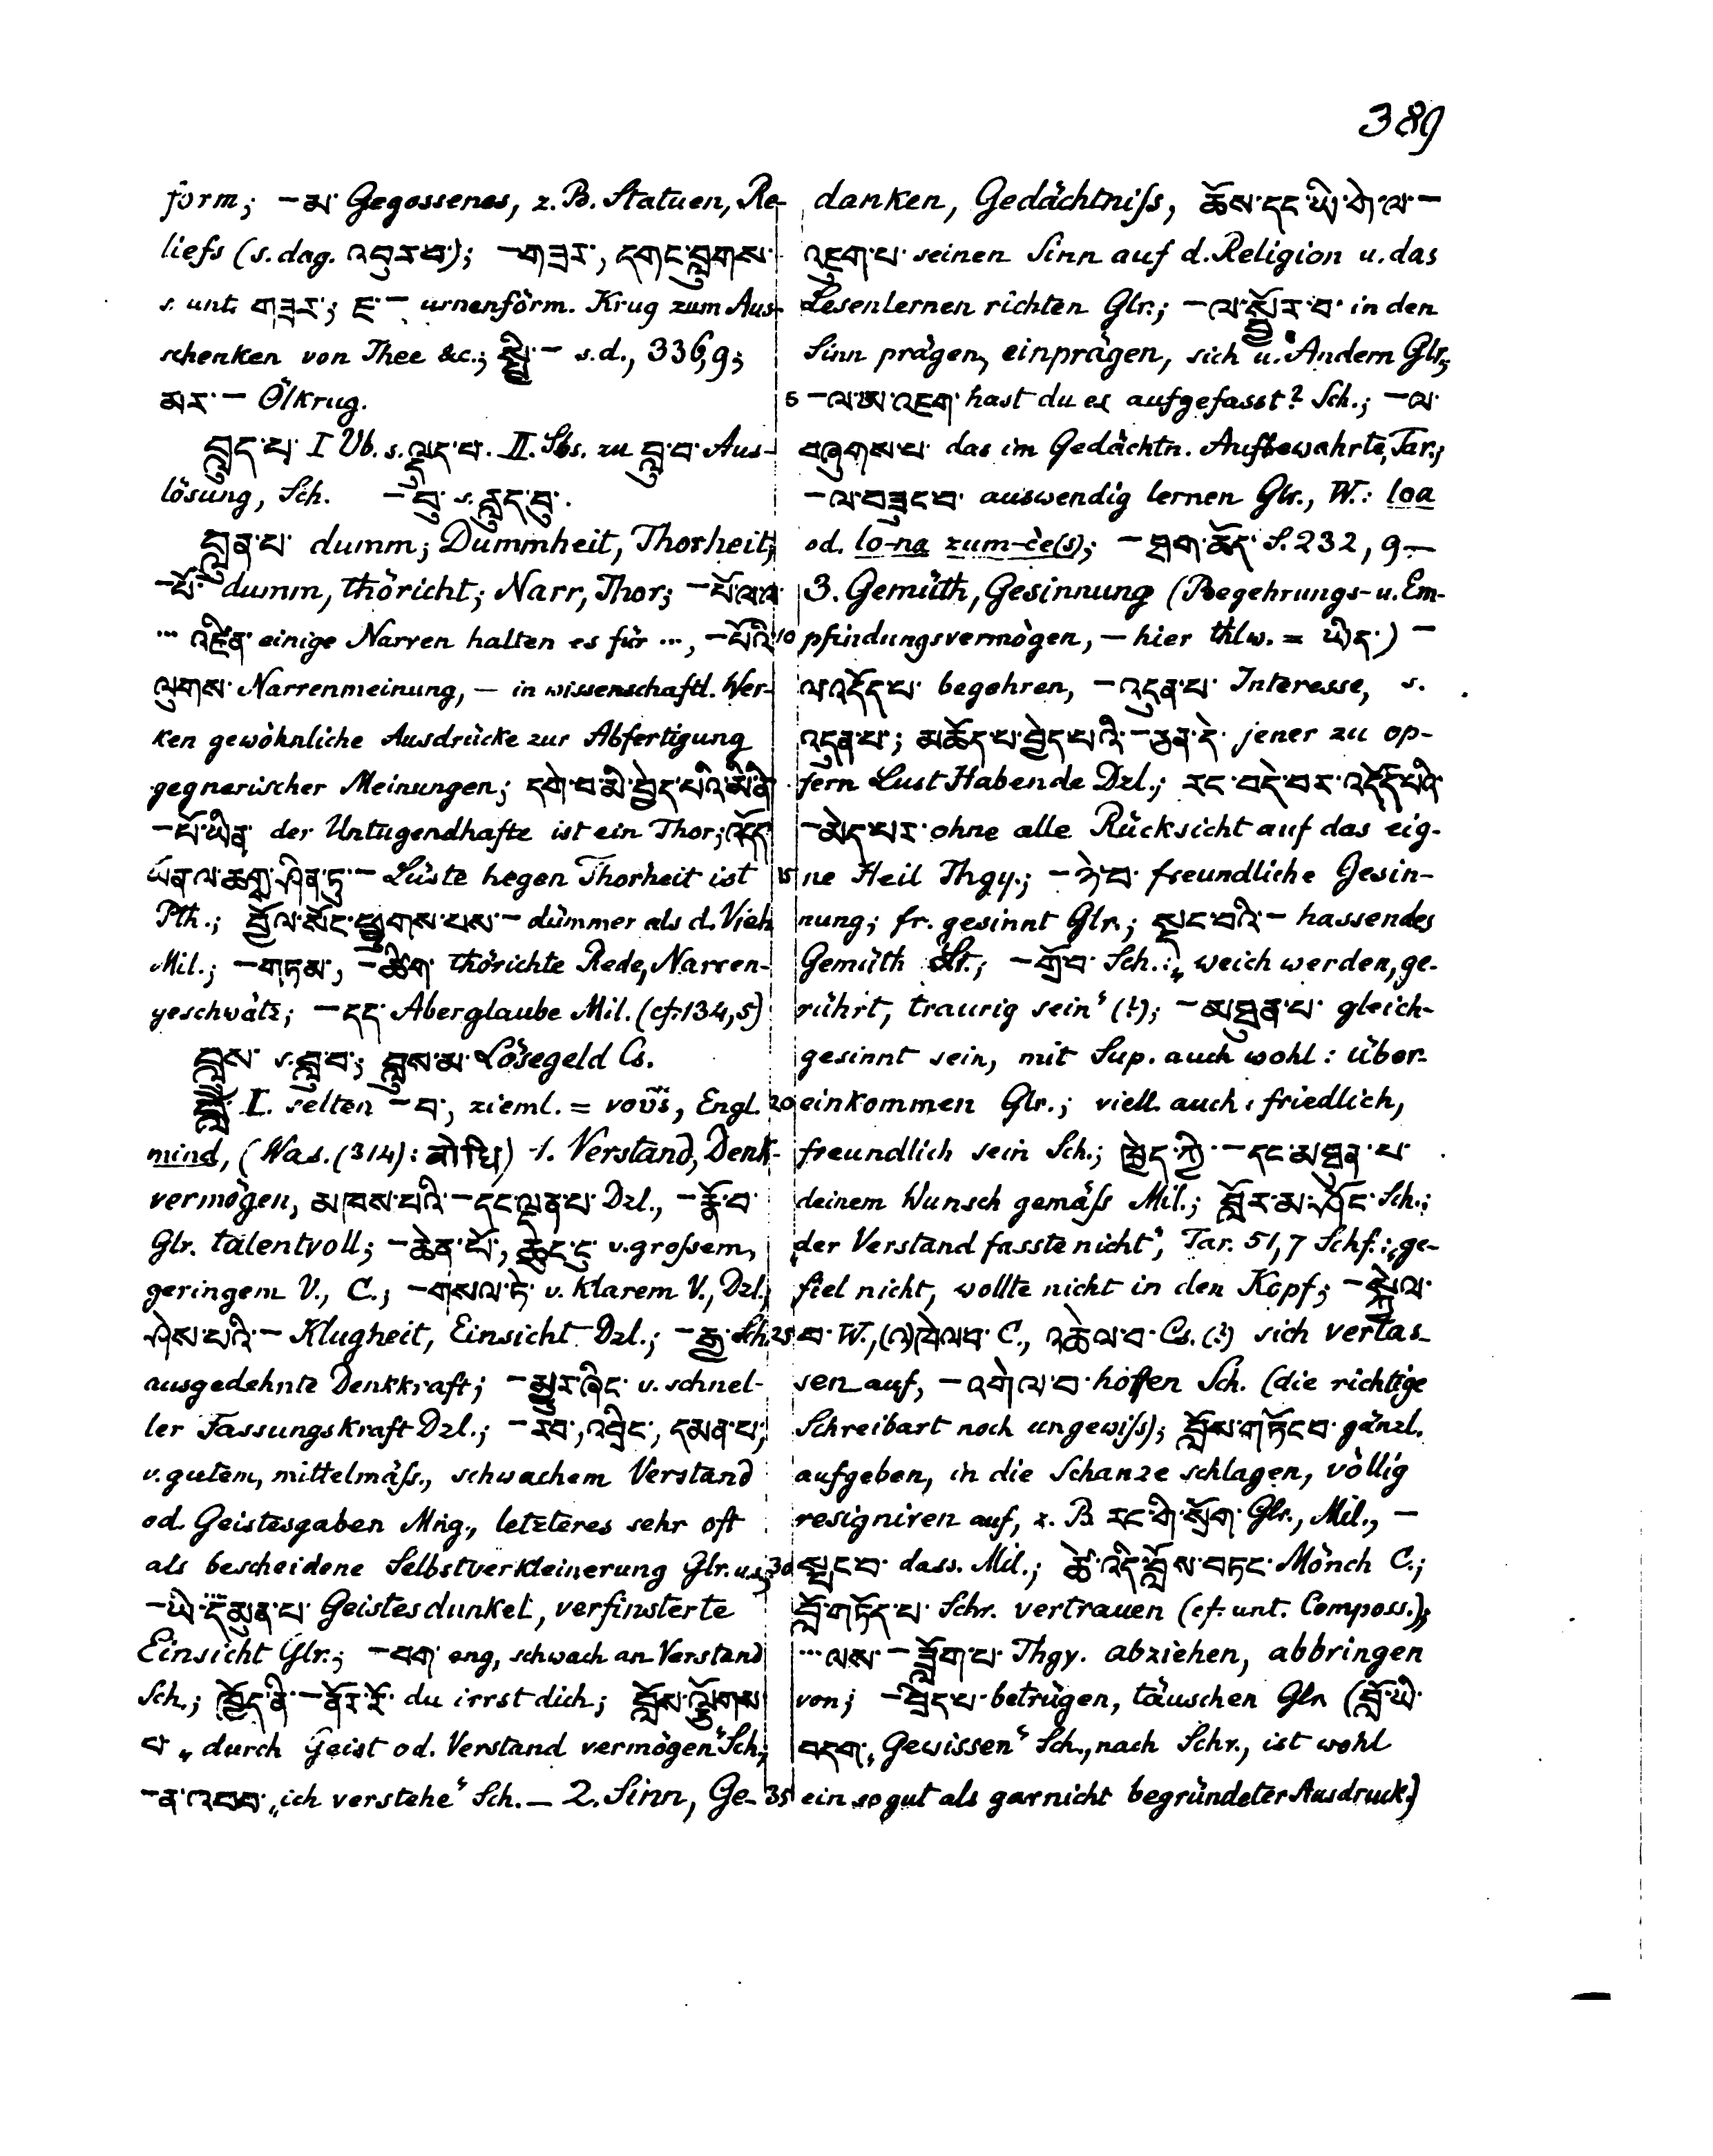 389
form; – མ་ Gegossenes, z. B. Statuen, Re-
liefs (s. dag. འབུར་བ་); – གཟར་, དགང་བླུགས་
s. unt. གཟར་; ཇ་ – urnenförm. Krug zum Aus-
schenken von Thee &c.; སྤྱི་ – s. d., 336,9;
མར་ – Ölkrug.
བླུད་པ་ I Vb. s. ལྡུད་པ་. II. Sbs. zu བླུ་བ་ Aus-
lösung, Sch. – བུ་ s. རླུད་བུ་.
བླུན་པ་ dumm; Dummheit, Thorheit;
– པོ་ dumm, thöricht; Narr, Thor; – པོ་ལ་ལ་
... འཛིན་ einige Narren halten es für ..., – པོའི་
ལུགས་ Narrenmeinung, – in wissenschaftl. Wer-
ken gewöhnliche Ausdrücke zur Abfertigung
gegnerischer Meinungen; དགེ་བ་མི་བྱེད་པའི་མི་ནི་
– པོ་ཡིན་ der Untugendhafte ist ein Thor; འདོད་
ཡོན་ལ་ཆགས་ཤིན་ཏུ་ – Lüste hegen Thorheit ist
Pth.; བྱོལ་སོང་ཕྱུགས་པས་ – dümmer als d. Vieh
Mil.; – གཏམ་, – ཚིག་ thörichte Rede, Narren-
geschwätz; – དད་ Aberglaube Mil. (cf. 134,5)
བླུས་ s. བླུ་བ་; བླུས་མ་ Lösegeld Cs.
བློ་ I. selten – བ་, zieml. = νοῦς, Engl.
mind, (Was. (314): बोधि) 1. Verstand, Denk-
vermögen, མཁས་པའི་ – དང་ལྡན་པ་ Dzl., – རྣོ་བ་
Glr. talentvoll; – ཆེན་པོ་, ཆུང་ངུ་ v. grossem,
geringem V., C.; – གསལ་ཏེ་ v. klarem V., Dzl.;
ཤེས་པའི་ – Klugheit, Einsicht Dzl.; – རྒྱ་ Sch.
ausgedehnte Denkkraft; – མྱུར་ཞིང་ v. schnel-
ler Fassungskraft Dzl.; – རབ་, འབྲིང་, དམན་པ་,
v. gutem, mittelmäss., schwachem Verstand
od. Geistesgaben Mṅg., letzteres sehr oft
als bescheidene Selbstverkleinerung Glr. u. s.;
– ཡི་མུན་པ་ Geistesdunkel, verfinsterte
Einsicht Glr.; – བག་ eng, schwach an Verstand
Sch.; ཁྱོད་ནི་ – ནོར་རོ་ du irrst dich; བློས་ལྕོགས་
པ་ „durch Geist od. Verstand vermögen" Sch.;
– ན་འབབ་ „ich verstehe" Sch. – 2. Sinn, Ge-
danken, Gedächtniss, ཆོས་དང་ཡི་གེ་ལ་ –
འཇུག་པ་ seinen Sinn auf d. Religion u. das
Lesenlernen richten Glr.; – ལ་སྦྱོར་བ་ in den
Sinn prägen, einprägen, sich u. Andern Glr.;
5 – ལ་མ་འཇག་ hast du es aufgefasst? Sch.; – ལ་
བཞུགས་པ་ das im Gedächtn. Aufbewahrte, Tar.;
– ལ་བཟུང་བ་ auswendig lernen Glr., W.: loa
od. lo-na zum-c̀e(s); – ཐག་ཆོད་ S. 232, 9 –
3. Gemüth, Gesinnung (Begehrungs- u. Em-
10 pfindungsvermögen, – hier thlw. = ཡིད་) –
ལ་འདོད་པ་ begehren, – འདུན་པ་ Interesse, s.
འདུན་པ་; མཆོད་པ་བྱེད་པའི་ – ཅན་དེ་ jener zu op-
fern Lust Habende Dzl.; རང་བདེ་བར་འདོད་པའི་
– མེད་པར་ ohne alle Rücksicht auf das eig-
15 ne Heil Thgy.; – ཉེ་བ་ freundliche Gesin-
nung; fr. gesinnt Glr.; སྡང་བའི་ – hassendes
Gemüth Glr.; – གྲོ་བ་ Sch.: „weich werden, ge-
rührt, traurig sein" (?); – མཐུན་པ་ gleich-
gesinnt sein, mit Sup. auch wohl: über-
20 einkommen Glr.; viell. auch: friedlich,
freundlich sein Sch.; ཁྱེད་ཀྱི་ – དང་མཐུན་པ་
deinem Wunsch gemäss Mil.; བློར་མ་ཤོང་ Sch.:
„der Verstand fasste nicht", Tar. 51,7 Schf.: „ge-
fiel nicht, wollte nicht in den Kopf; – སྐྱེལ་
25 བ་ W., (འ)ཁེལ་བ་ C., འཆེལ་བ་ Cs. (?) sich verlas-
sen auf, – འགེལ་བ་ hoffen Sch. (die richtige
Schreibart noch ungewiss); བློས་གཏོང་བ་ gänzl.
aufgeben, in die Schanze schlagen, völlig
resigniren auf, z. B རང་གི་སྲོག་ Glr., Mil., –
30 སྤང་བ་ dass. Mil.; ཚེ་འདི་བློས་བཏང་ Mönch C.;
བློ་གཏོད་པ་ Schr. vertrauen (cf. unt. Composs.);
... ལས་ – ཟློག་པ་ Thgy. abziehen, abbringen
von; – བྲིད་པ་ betrügen, täuschen Glr. (བློ་ཡི་
བདག་ „Gewissen" Sch., nach Schr., ist wohl
35 ein so gut als garnicht begründeter Ausdruck.)